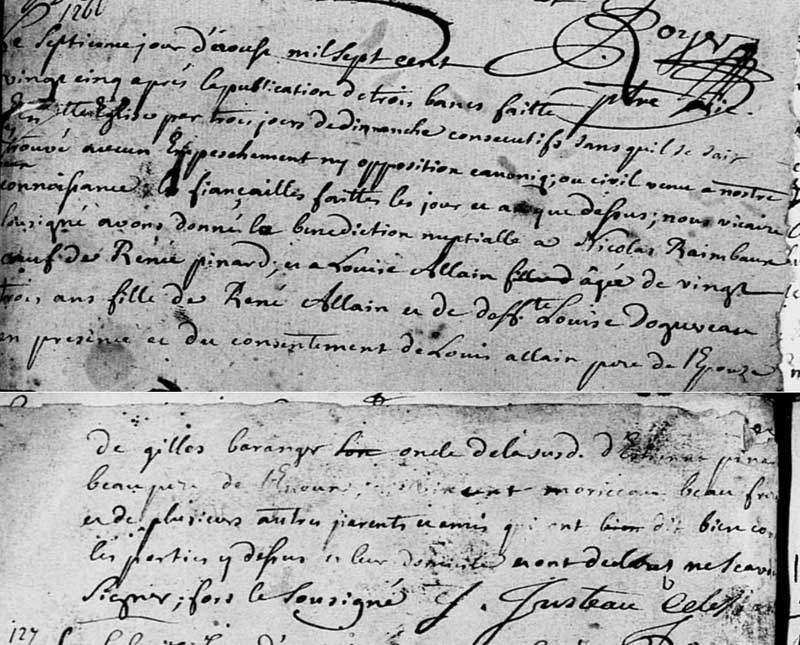 126
Royer
Le septieme jour d'aouse mil sept cent
vingt cinq aprés la publication de trois bancs faitte ptre
Eglise par trois jours de dimanche consecutifs sans quil se soit
trouvé aucun Empeschement ny opposition canoniq; ou civil venue a nostre
connoissance; les fiançailles faittes les jour et an que dessus; nous vicaire
sousigné avons donné la benediction nuptialle a Nicolas Raimbault
veuf de Renée pinard, et a Louise Allain âgée de vingt
trois ans fille de René Allain et de deffte Louise
en presence et du consentement de Louis allain pere de l'Epouze
de gilles baranger son oncle de la susd. d'Estienne pina
beau pere de l'Epoux, moriceau beau fre
et de plusieurs autres parents et amis qui ont dit bien co
les parties cy dessus et leur domicile et ont declaré ne scavoi
signer; fors le sousigné J. Justeau
127